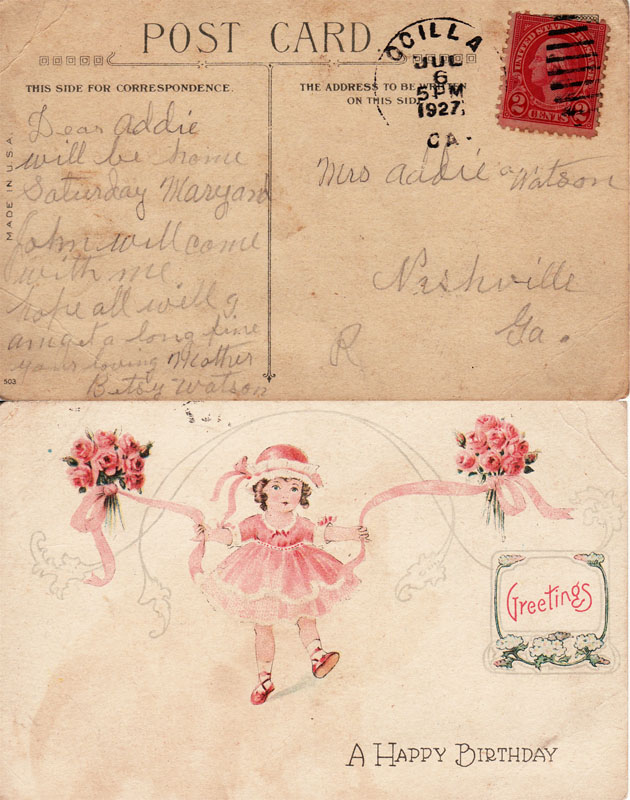 POST CARD.
OCILLA
JUL
6
5 PM
1927
GA.
UNITED STATES POSTAGE
2 CENTS 2
THIS SIDE FOR CORRESPONDENCE.
THE ADDRESS TO BE WRITTEN
ON THIS SIDE
MADE IN U.S.A.
Dear Addie
will be home
Saturday Mary and
John will come
with me
hope all well
am get a long fine
your loving Mother
Betsy Watson
503
Mrs Addie Watson
Nashville
Ga.
R
Greetings
A HAPPY BIRTHDAY